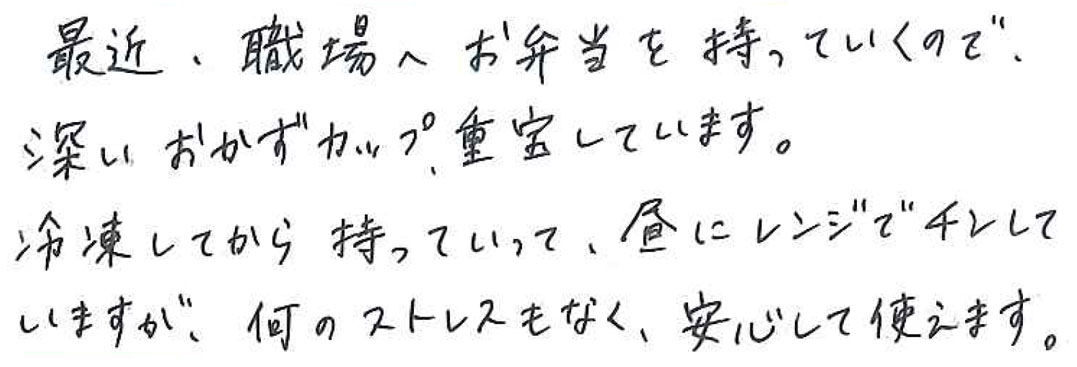 最近、職場へお弁当を持っていくので、
深いおかずカップ、重宝しています。
冷凍してから持っていって、昼にレンジでチンして
いますが、何のストレスもなく、安心して使えます。